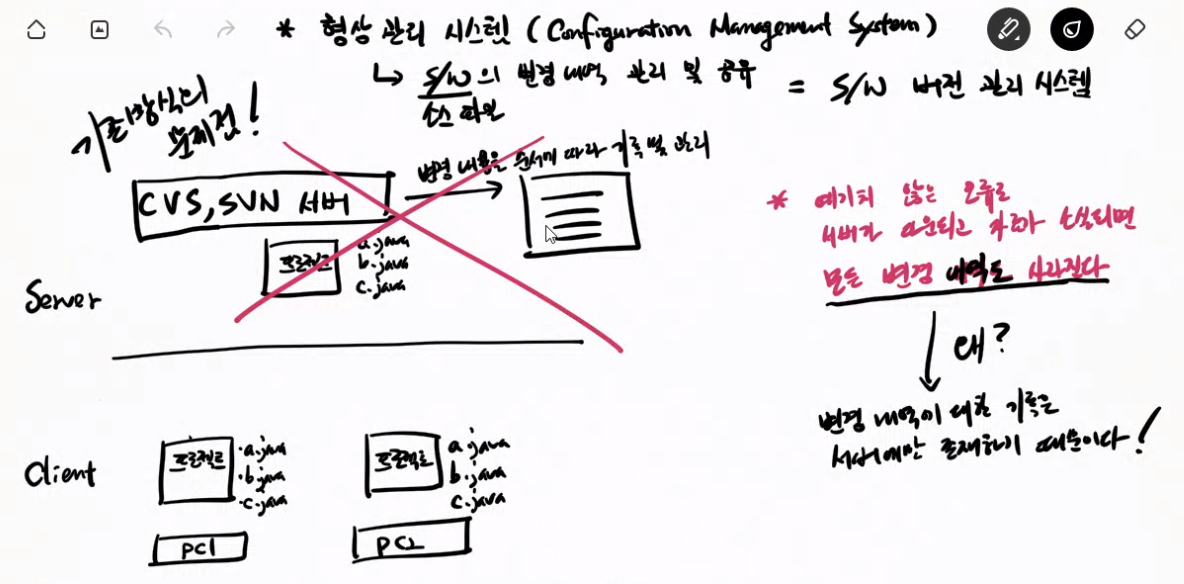 * 형상 관리 시스템 (Configuration Management System)
↳ S/W의 변경 내역 관리 및 공유
소스 파일
= S/W 버전 관리 시스템
기존방식의
문제점!
변경 내용을 순서에 따라 기록 및 관리
CVS, SVN 서버
프로젝트
a.java
b.java
c.java
Server
* 예기치 않는 오류로
서버가 다운되고 자료가 소실되면
모든 변경 내역도 사라진다
왜?
변경 내역에 대한 기록은
서버에만 존재하기 때문이다!
Client
프로젝트
·a.java
·b.java
·c.java
PC1
프로젝트
a.java
b.java
c.java
PC2